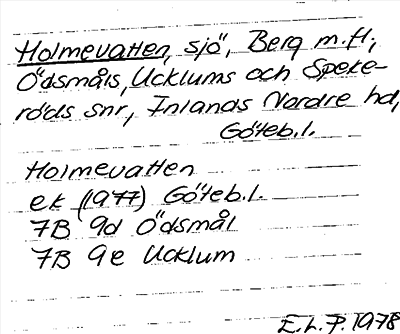 Holmevatten, sjö, Berg m.fl.,
Ödsmåls, Ucklums och Speke-
röds snr, Inlands Nordre hd,
Göteb.l.
Holmevatten
ek (1977) Göteb.l.
7B 9d Ödsmål
7B 9e Ucklum
E.L.P. 1978